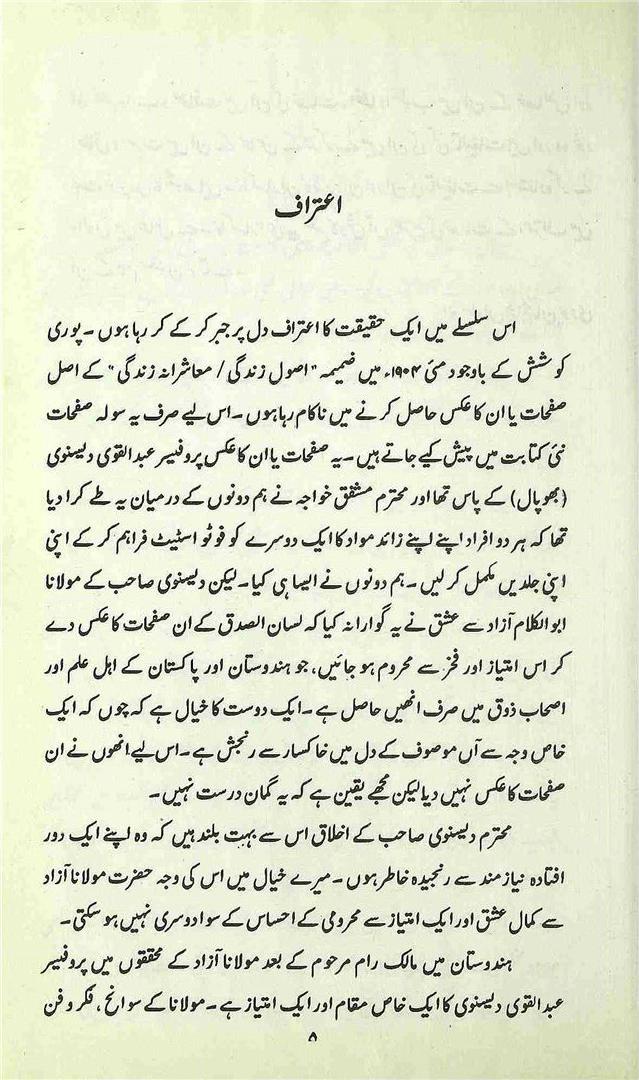 اعتراف
اس سلسلے میں ایک حقیقت کا اعتراف دل پر جبر کر کے کر رہا ہوں ۔ پوری
کوشش کے باوجود مئی ۱۹۰۴ء میں ضمیمہ "اصول زندگی / معاشرانہ زندگی" کے اصل
صفحات یا ان کا عکس حاصل کرنے میں ناکام رہا ہوں ۔ اس لیے صرف یہ سولہ صفحات
نئی کتابت میں پیش کیے جاتے ہیں ۔ یہ صفحات یا ان کا عکس پروفیسر عبدالقوی دیسنوی
(بھوپال) کے پاس تھا اور محترم مشفق خواجہ نے ہم دونوں کے درمیان یہ طے کرا دیا
تھا کہ ہر دو افراد اپنے اپنے زائد مواد کا ایک دوسرے کو فوٹو اسٹیٹ فراہم کر کے اپنی
اپنی جلدیں مکمل کر لیں ۔ ہم دونوں نے ایسا ہی کیا ۔ لیکن دیسنوی صاحب کے مولانا
ابوالکلام آزاد سے عشق نے یہ گوارا نہ کیا کہ لسان الصدق کے ان صفحات کا عکس دے
کر اس امتیاز اور فخر سے محروم ہو جائیں، جو ہندوستان اور پاکستان کے اہل علم اور
اصحاب ذوق میں صرف انھیں حاصل ہے ۔ ایک دوست کا خیال ہے کہ چوں کہ ایک
خاص وجہ سے آں موصوف کے دل میں خاکسار سے رنجش ہے ۔ اس لیے انھوں نے ان
صفحات کا عکس نہیں دیا لیکن مجھے یقین ہے کہ یہ گمان درست نہیں ۔
محترم دیسنوی صاحب کے اخلاق اس سے بہت بلند ہیں کہ وہ اپنے ایک دور
افتادہ نیاز مند سے رنجیدہ خاطر ہوں ۔ میرے خیال میں اس کی وجہ حضرت مولانا آزاد
سے کمال عشق اور ایک امتیاز سے محرومی کے احساس کے سوا دوسری نہیں ہو سکتی ۔
ہندوستان میں مالک رام مرحوم کے بعد مولانا آزاد کے محققوں میں پروفیسر
عبدالقوی دیسنوی کا ایک خاص مقام اور ایک امتیاز ہے ۔ مولانا کے سوانح، فکر و فن
۸